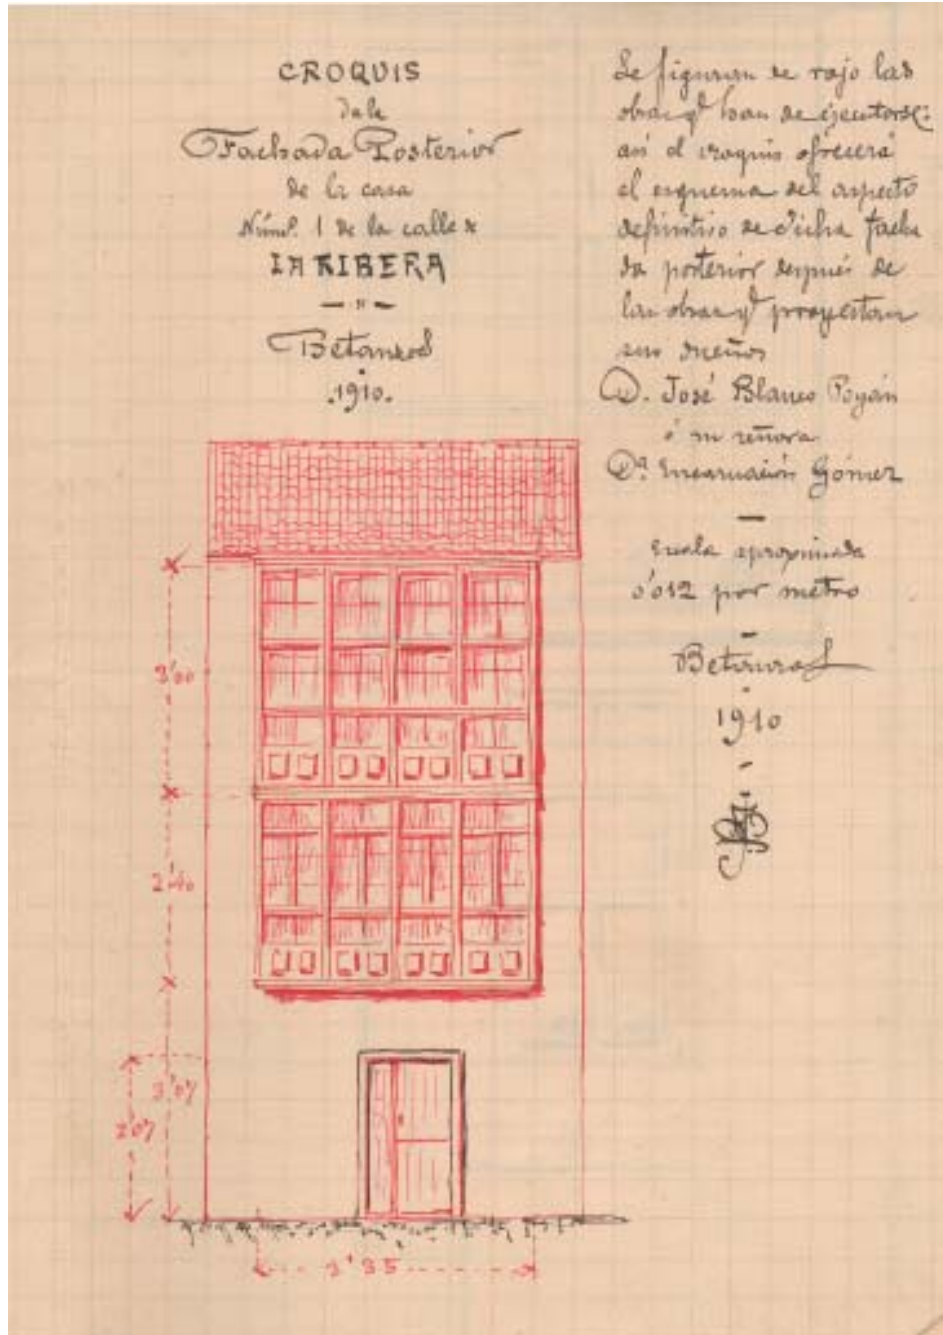 CROQUIS
de la
Fachada Posterior
de la casa
Núm. 1 de la calle de
LA RIBERA
Betanzos
1910.
Se figuran de rojo las
obras q.e han de ejecutarse:
así el croquis ofrecerá
el esquema del aspecto
definitivo de dicha facha
da posterior después de
las obras q.e proyectan
sus dueños
D. José Blanco Poyán
ó su señora
Dª. Encarnación Gómez
Escala aproximada
0'012 por metro
Betanzos
1910
3'00
2'40
3'07
2'07
3'35